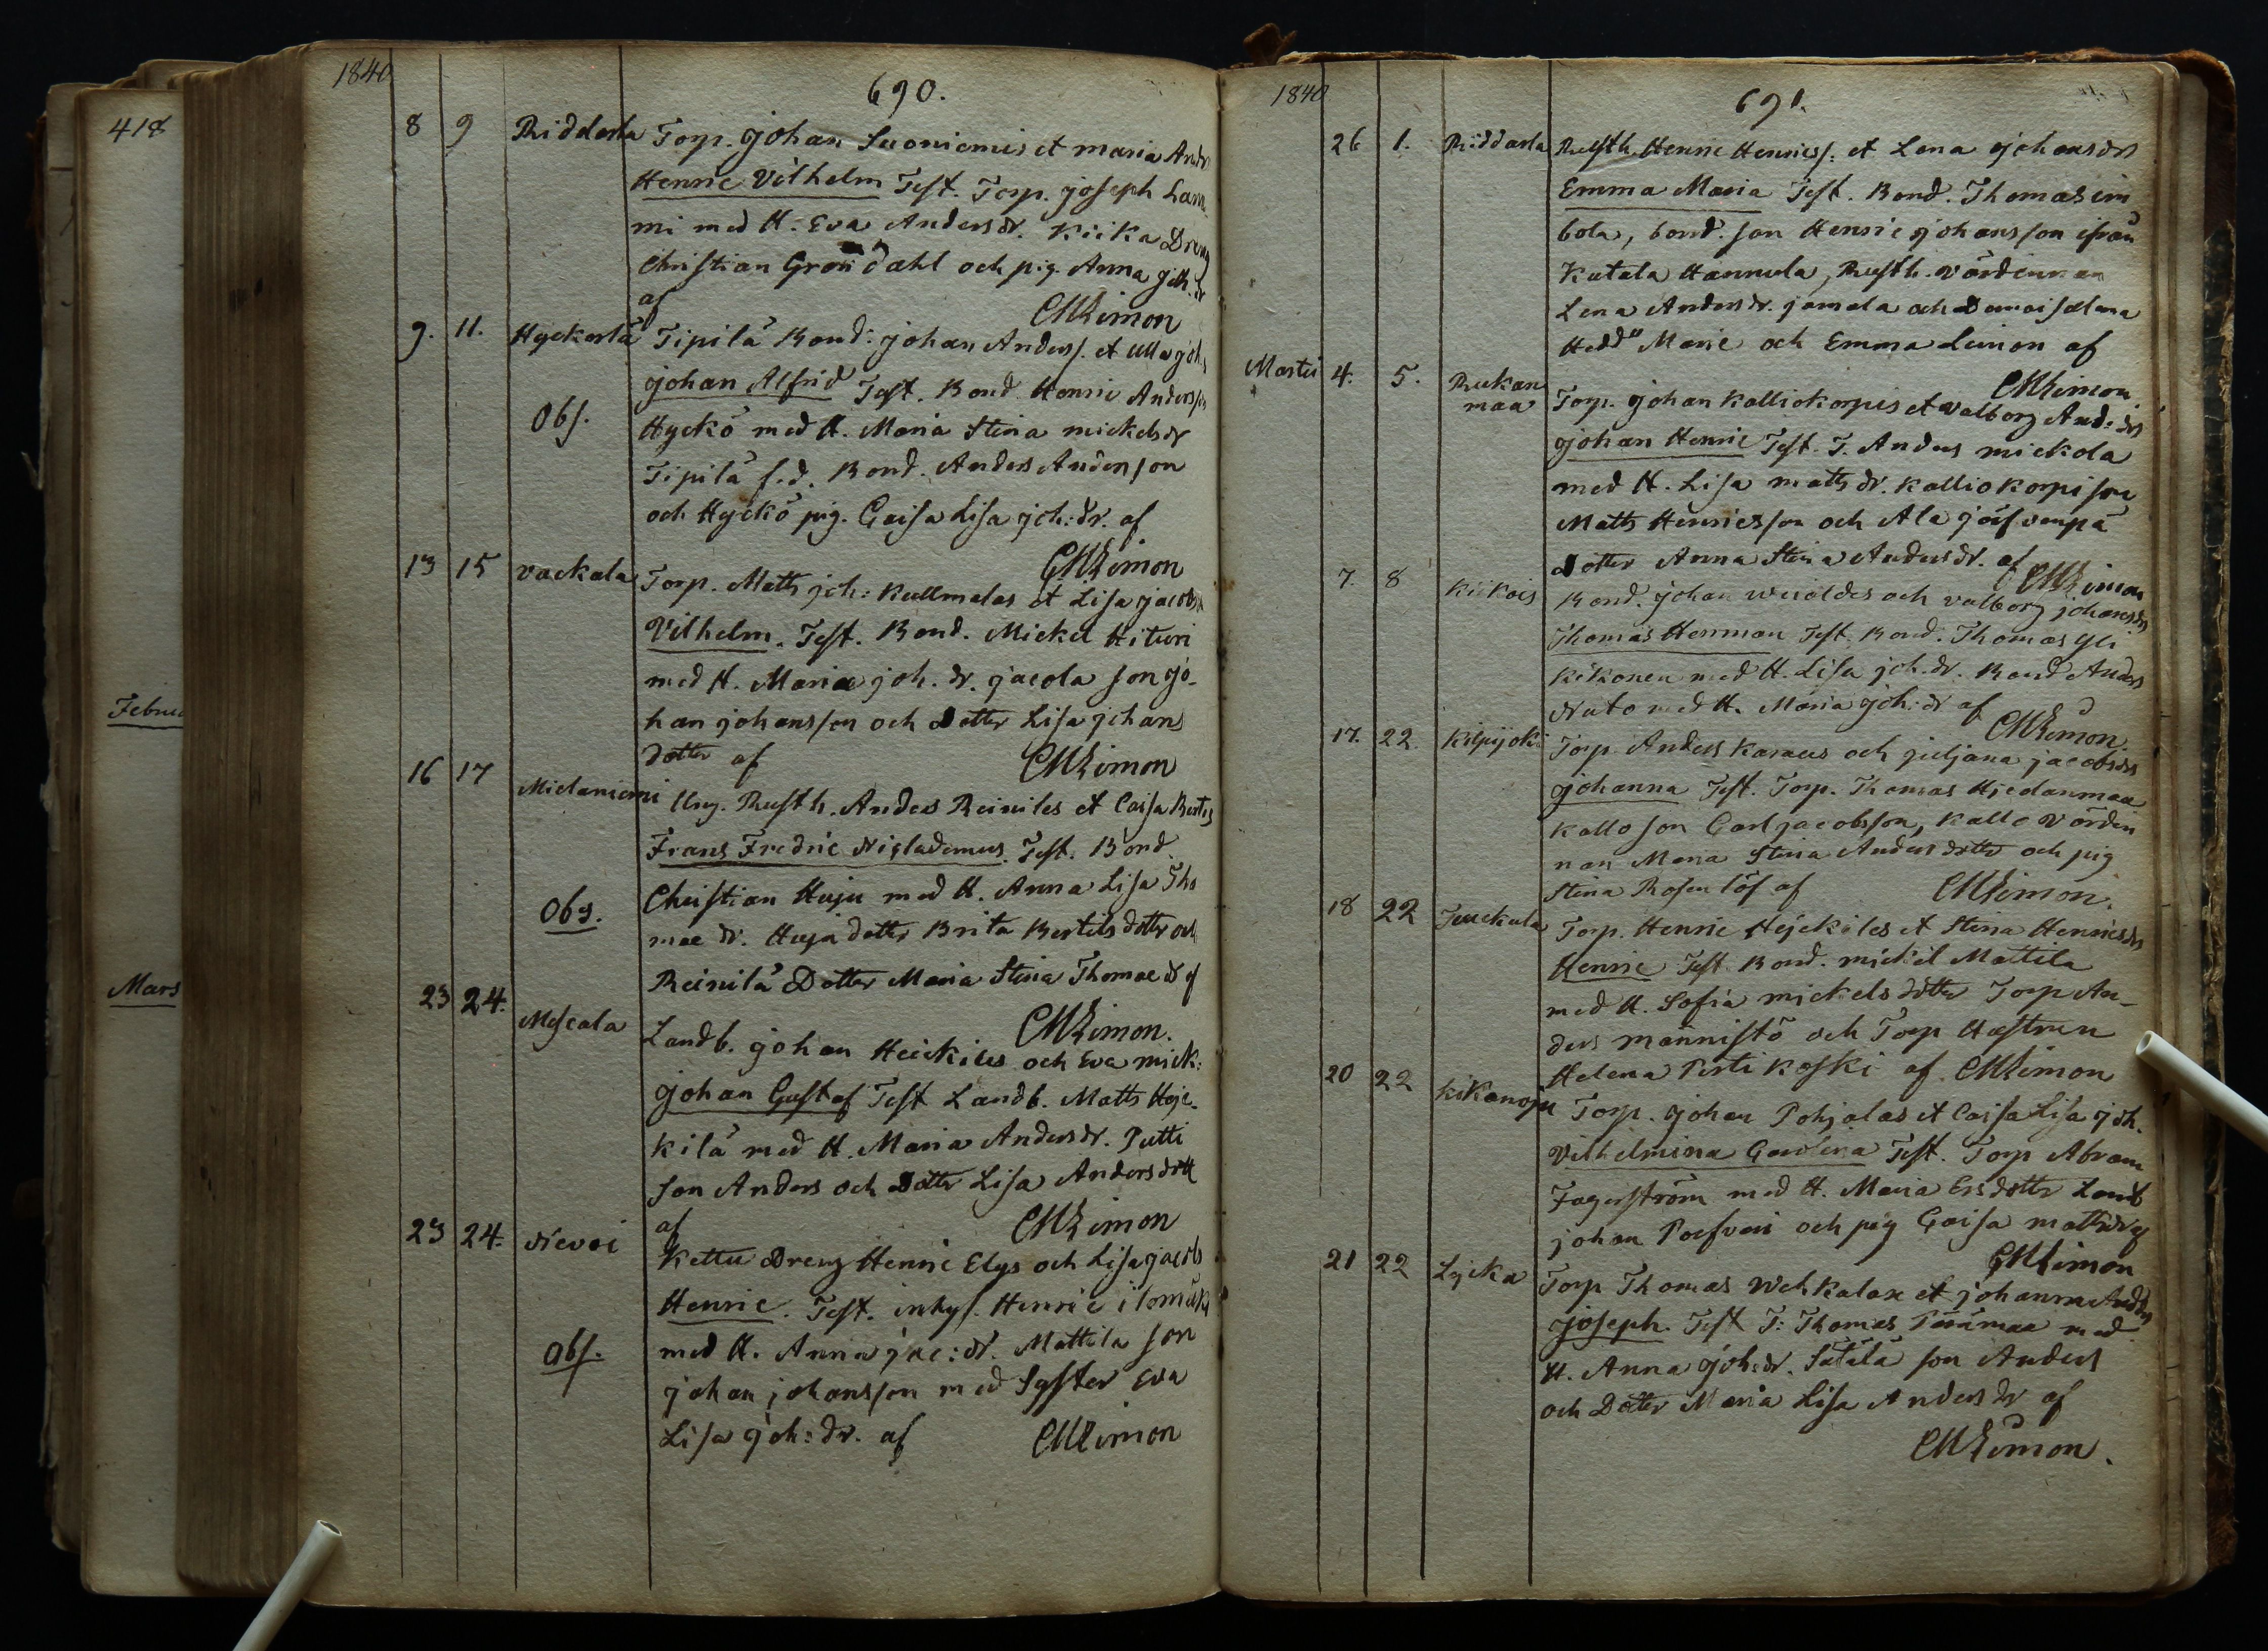 418
Febru
Mars
1840
690.
8 9 Riddarla Torp. Johan Suoniemis et Maria Andr
Henric Vilhelm Test. Torp. Joseph Lam
mi med H. Eva Andersdr. Kiika Dreng
Christian Grondahl och pig. Anna Joh. dr
af CMLimon
9. 11. Hyckerlä Tipilä Bond: Johan Anderss. et Ulla Johs
Johan Alfrid Test. Bond Henric Andersson
Obs. Hyckö med H. Maria Stina Mickelsdr
Tipilä f.d. Bond. Anders Andersson
och Hyckö pig. Caisa Lisa Joh: dr. af
CMLimon
13 15 Vackala Torp. Matts Joh: Kullmalas et Lisa Jacobsd
Vilhelm. Test. Bond. Mickel Hituri
med H. Maria Joh. dr. Jacola son Jo-
han Johansson och Dotter Lisa Johans
dotter af CMLimon
16 17 Mielaniemi Ung. Rusth. Anders Reiniles et Caisa Bertes
Frans Fredric Nicladimus. Test. Bond.
Obs. Christian Huju med H. Anna Lisa Tho
mae dr. Huja dotter Brita Bertils dotter och
Reinilä Dotter Maria Stina Thomae dr af
CMLimon.
23 24. Mescala Landb. Johan Heickiles och Eva Mick:
Johan Gustaf Test Landb. Matts Heje-
kilä med H. Maria Andersdr. Putti
son Anders och Dotter Lisa Andersdott
af CMLimon
23 24. Nievoi Kettu Dreng Henric Elgs och Lisa Jacobs
Henric. Test. inhys. Henric
Obs. med H. Anna Jac: dr. Mattila son
Johan Johansson med Syster Eva
Lisa Joh: dr. af CMLimon
1840
691.
26 1. Riddarla Rusth. Henric Henrics: et Lena Johansdr
Emma Maria Test. Bond. Thomas im
bola, bond. son Henric Johansson ifrån
Kutala Hannula, Rusth. värdinnan
Lena Andersdr. Jamala och Demoisellerna
Hedd Marie och Emma Limon af
CMLimon
Martii 4. 5. Ruukan
maa Torp. Johan Kalliokorpis et Valborg And: dr
Johan Henric Test. T. Anders Mickola
med H. Lisa Matts dr. Kalliokorpi son
Matts Henricsson och Ala Järfvenpä
Dotter Anna Stina Andersdr. af CMLimon
7. 8 Kiikois Bond. Johan och Valborg Johansdr
Thomas Herman Test. Bond. Thomas Yli
Kikonen med H. Lisa Joh. dr. Bond Anders
Nuto med H. Maria Joh: dr af
CMLimon.
17. 22. Kilpijoki Torp. Anders Karaus och Juljana Jacobsdr
Johanna Test. Torp. Thomas Hiedanmaa
Kallo son Carl Jacobsson, Kallo Värdin
nan Maria Stina Anders dotter och pig
Stina Rosenlöf af CMLimon.
18 22 Jauckula Torp. Henric Hejckiles et Stina Henricsdr
Henric Test. Bond. Mickel Mattila
med H. Sofia Mickels dotter Torp An-
ders Männistö och Torp Hustrun
Helena Pertikoski af CMLimon
20 22 Kikanoja Torp. Johan Pohjalas et Caisa Lisa Joh.
Vilhelmina Carolina Test. Torp Abram
Fagerström med H. Maria Ersdotter Landb
Johan och pig Caisa Mattsdr af
CMLimon
21 22 Lyckä Torp Thomas Wehkalax et Johanna And dr
Joseph. Test T: Thomas Pärämaa med
H. Anna Joh: dr. Sutala son Anders
och Dotter Maria Lisa Anders dr af
CMLimon.